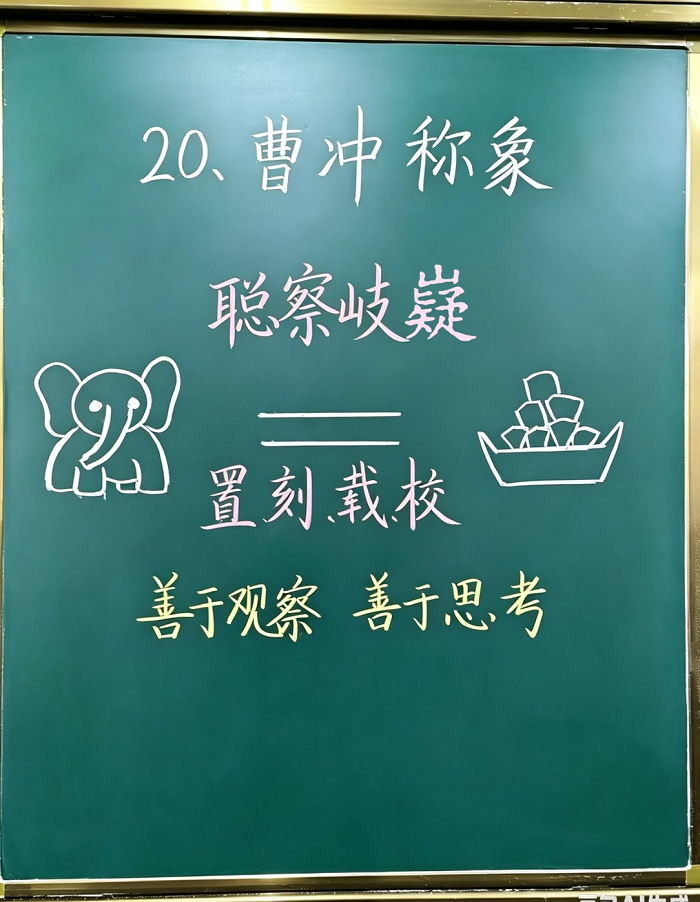 20、曹冲称象
聪察岐嶷
置、刻、载、校
善于观察 善于思考